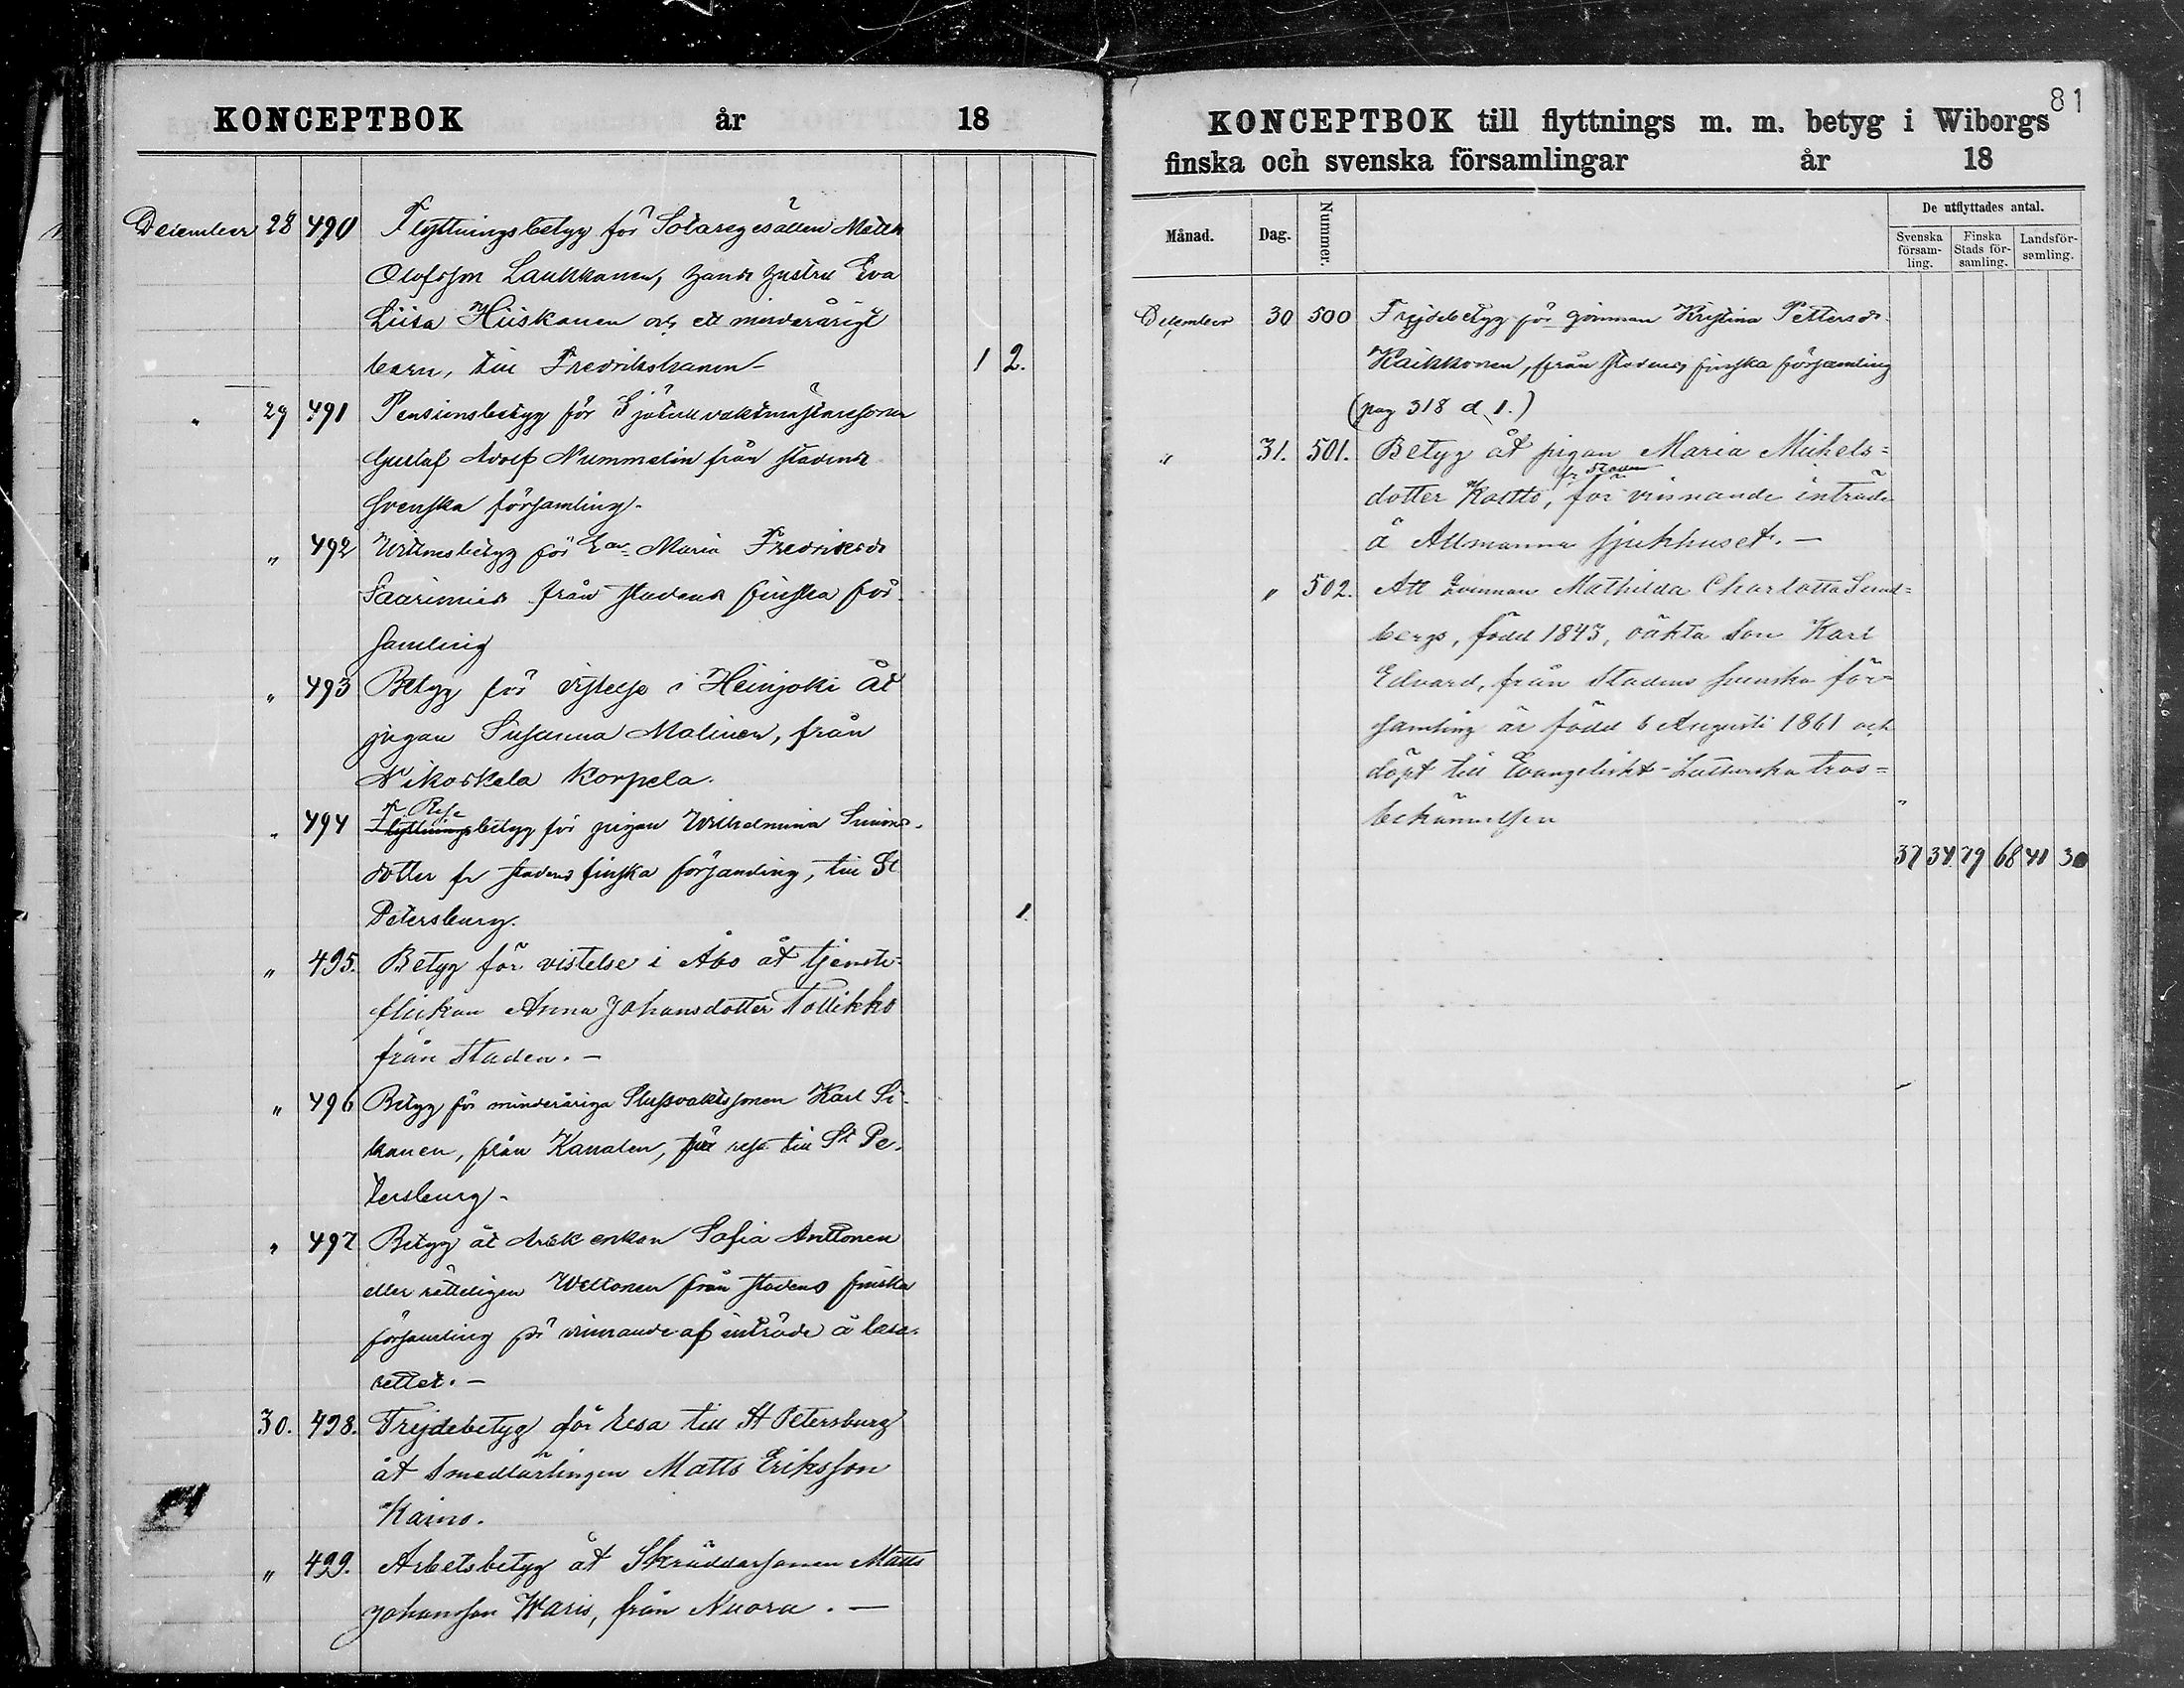 KONCEPTBOK år 18
December 28 490 Flyttningsbetyg för Sotaregesällen Matts
Olofsson Laukkanen, hans hustru Eva
Liisa Hiiskanen och ett minderårigt
barn, till Fredrikshamn – 1 2.
" 29 491 Pensionsbetyg för Sjötullvaktmästaresonen
Gustaf Adolf Nummelin från stadens
svenska församling.
" 492 betyg för Maria Fredriksdr
Saarinen från stadens finska för-
samling
" 493 Betyg för vistelse i Heinjoki åt
pigan Susanna Malinen, från
Nikoskela Korpela.
" 494 Flyttningsbetyg Rese för pigan Wilhelmina Simons-
dotter fr stadens finska församling, till St
Petersburg. 1.
" 495. Betyg för vistelse i Åbo åt tjenste-
flickan Anna Johansdotter Tollikko
från staden. –
" 496 Betyg för minderåriga Slussvaktssonen Karl Si-
kanen, från Kanalen, för resa till St Pe-
tersburg.
" 497 Betyg åt enkan Sofia Anttonen
eller rätteligen Weltonen från stadens finska
församling för vinnande af inträde å laza-
rettet. –
30. 498. Frejdebetyg för resa till St Petersburg
åt Smedlärlingen Matts Eriksson
Kaino.
" 499. Arbetsbetyg åt Skräddarsonen Matts
Johansson Waris, från Nuora. –
81
KONCEPTBOK till flyttnings m. m. betyg i Wiborgs
finska och svenska församlingar år 18
Månad. Dag. Nummer. De utflyttades antal.
Svenska församling. Finska Stads församling. Landsförsamling.
December 30 500 Frejdebetyg för qvinnan Kristina Pettersdr
Kaikkonen, från stadens finska församling
(pag 318 d. 1.)
" 31. 501. Betyg åt pigan Maria Mickels=
dotter Kontto, fr Staden för vinnande inträde
å Allmänna sjukhuset. –
" 502. Att qvinnan Mathilda Charlotta Sund=
bergs, född 1843, oäkta son Karl
Edvard, från Stadens svenska för=
samling är född 6 Augusti 1861 och
döpt till Evangeliskt-Lutherska tros=
bekännelsen "
37 34 79 68 41 30